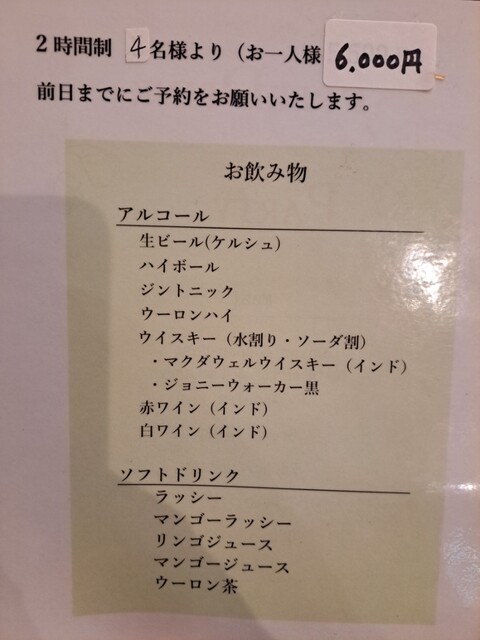 2時間制 4名様より（お一人様 6.000円
前日までにご予約をお願いいたします。
お飲み物
アルコール
生ビール(ケルシュ)
ハイボール
ジントニック
ウーロンハイ
ウイスキー（水割り・ソーダ割）
・マクダウェルウイスキー（インド）
・ジョニーウォーカー黒
赤ワイン（インド）
白ワイン（インド）
ソフトドリンク
ラッシー
マンゴーラッシー
リンゴジュース
マンゴージュース
ウーロン茶